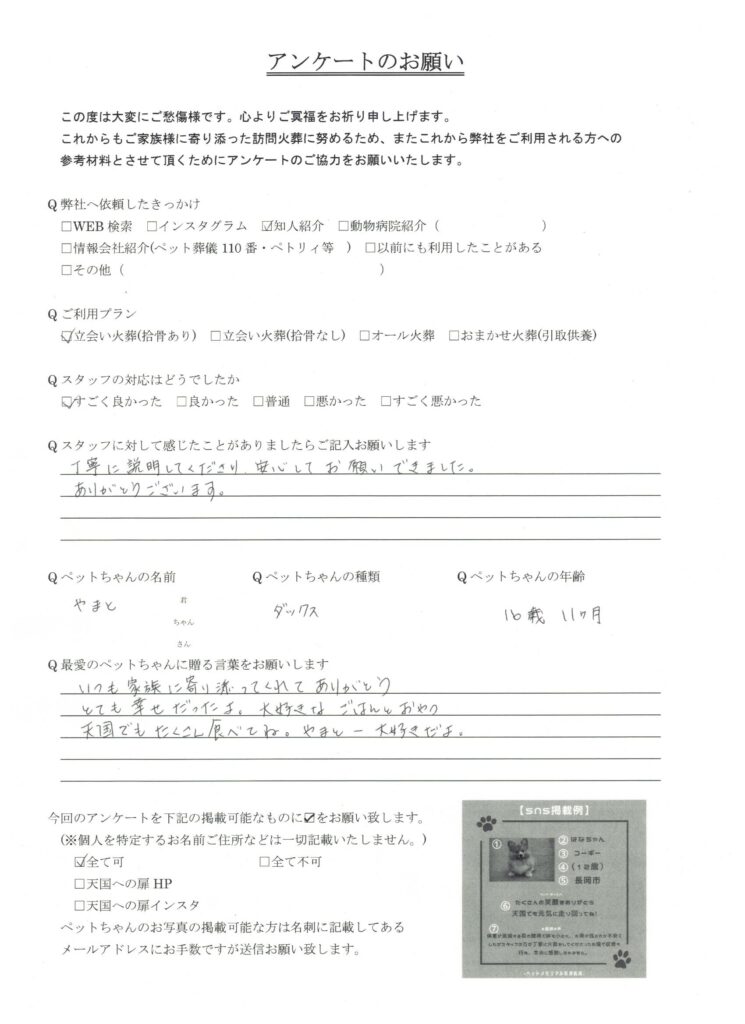 アンケートのお願い
この度は大変にご愁傷様です。心よりご冥福をお祈り申し上げます。
これからもご家族様に寄り添った訪問火葬に努めるため、またこれから弊社をご利用される方への
参考材料とさせて頂くためにアンケートのご協力をお願いいたします。
Q 弊社へ依頼したきっかけ
□WEB 検索 □インスタグラム ☑知人紹介 □動物病院紹介（ ）
□情報会社紹介(ペット葬儀 110 番・ペトリィ等 ) □以前にも利用したことがある
□その他（ ）
Q ご利用プラン
☑立会い火葬(拾骨あり) □立会い火葬(拾骨なし) □オール火葬 □おまかせ火葬(引取供養)
Q スタッフの対応はどうでしたか
☑すごく良かった □良かった □普通 □悪かった □すごく悪かった
Q スタッフに対して感じたことがありましたらご記入お願いします
丁寧に説明してくださり、安心してお願いできました。
ありがとうございます。
Q ペットちゃんの名前 Q ペットちゃんの種類 Q ペットちゃんの年齢
やまと 君 ちゃん さん ダックス 16歳 11ヶ月
Q 最愛のペットちゃんに贈る言葉をお願いします
いつも家族に寄り添ってくれてありがとう
とても幸せだったよ。大好きなごはんとおやつ
天国でもたくさん食べてね。やまとー大好きだよ。
今回のアンケートを下記の掲載可能なものに☑をお願い致します。
(※個人を特定するお名前ご住所などは一切記載いたしません。)
☑全て可 □全て不可
□天国への扉 HP
□天国への扉インスタ
ペットちゃんのお写真の掲載可能な方は名刺に記載してある
メールアドレスにお手数ですが送信お願い致します。
【sns掲載例】
①
② はなちゃん
③ コーギー
④ (12歳)
⑤ 長岡市
⑥ たくさんの笑顔をありがとう
天国でも元気に走り回ってね！
⑦